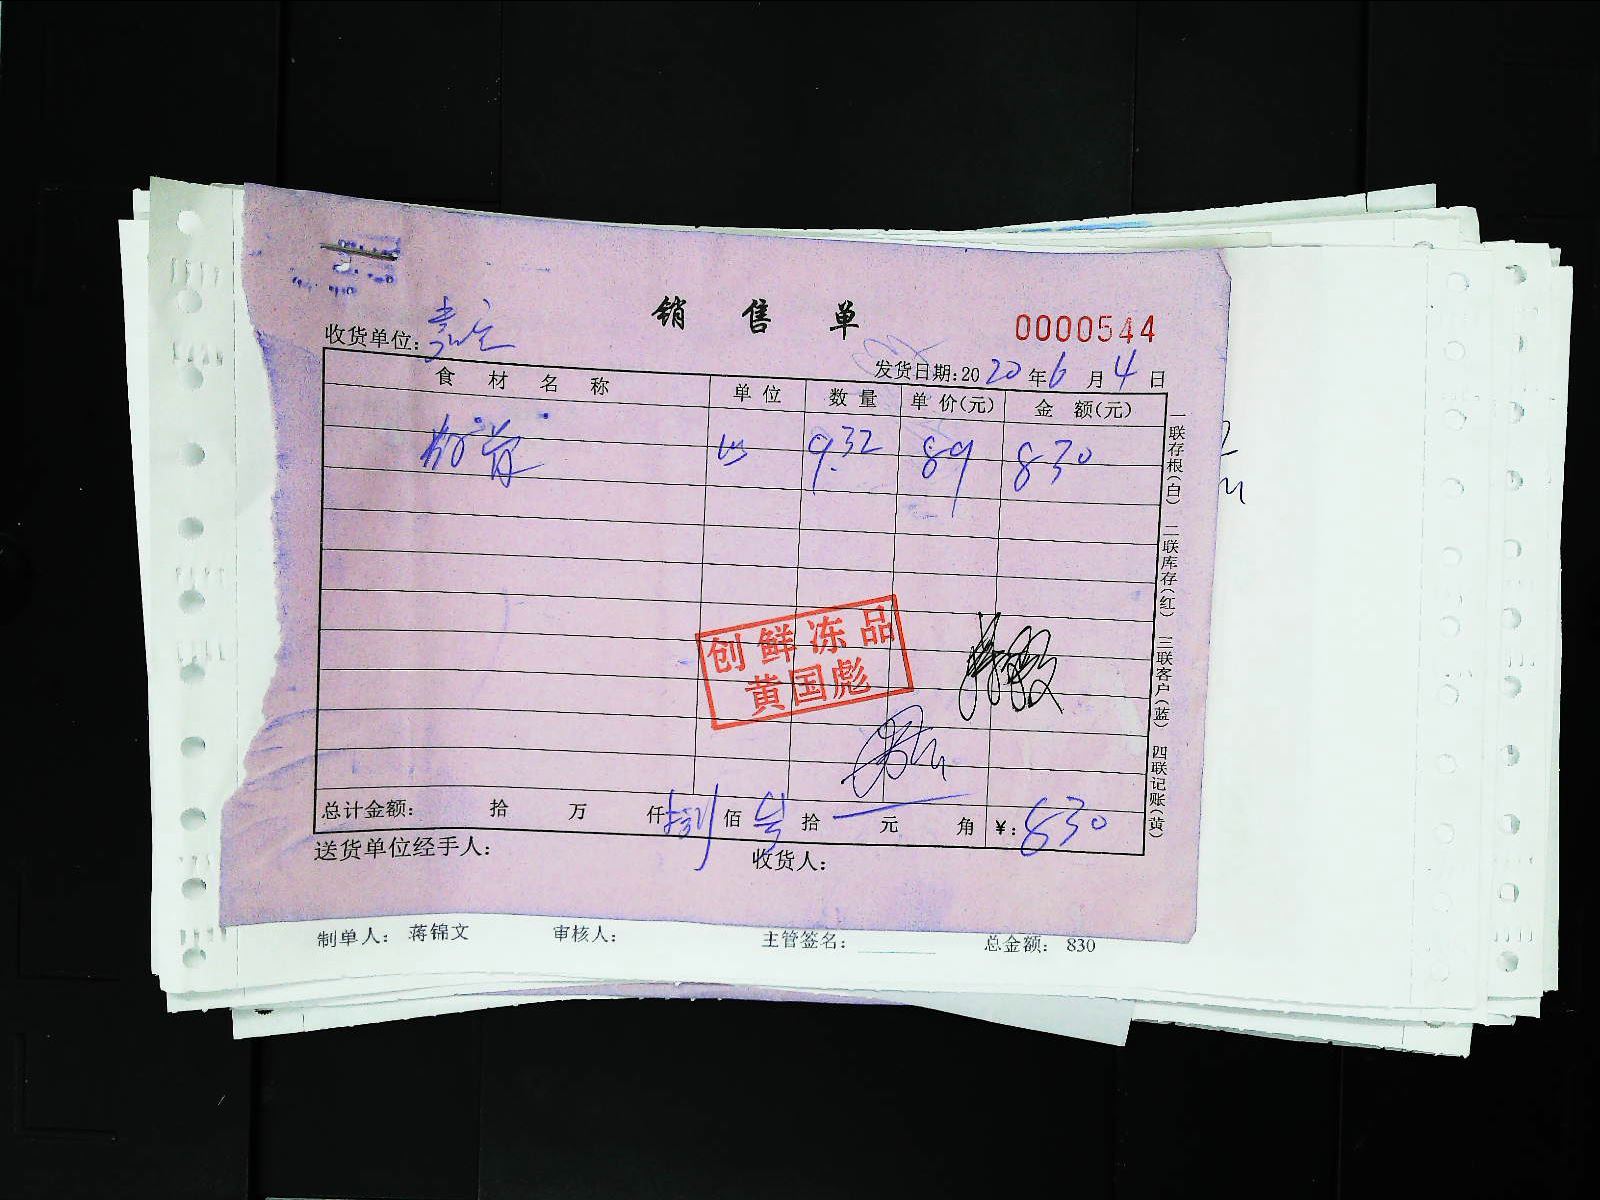 销售单
0000544
收货单位:嘉宝
发货日期:2020年6月4日
食材名称 单位 数量 单价(元) 金额(元)
9.32 89 830
一联存根(白) 二联库存(红) 三联客户(蓝) 四联记账(黄)
创鲜冻品
黄国彪
总计金额: 拾 万 仟 捌 佰 叁 拾 元 角 ¥:830
送货单位经手人: 收货人:
制单人: 蒋锦文 审核人: 主管签名: 总金额: 830